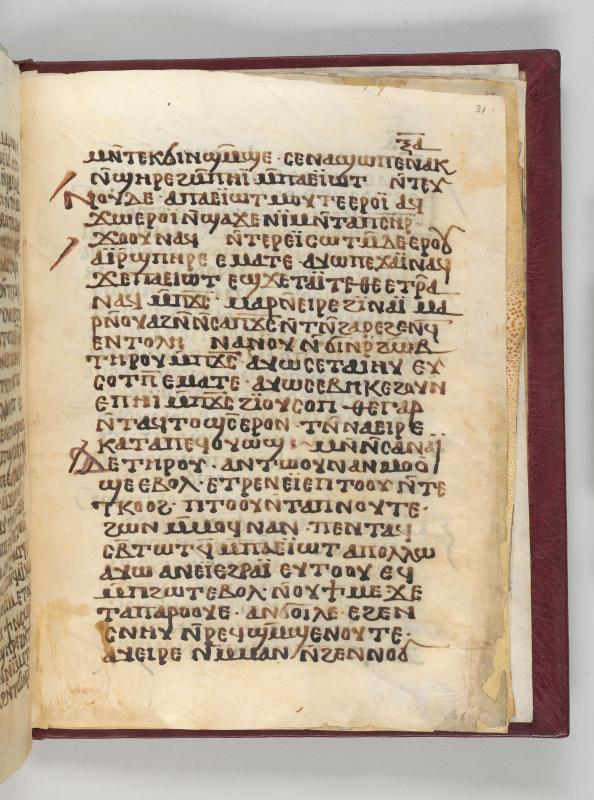 31
ⲝⲁ
ⲙⲛ̄ⲧⲉⲕϭⲓⲛϣⲙ̄ϣⲉ · ⲥⲉⲛⲁϣⲱⲡⲉⲛⲁⲕ
ⲛ̄ϣⲏⲣⲉϩⲙ̄ⲡⲏⲓ̈ ⲙ̄ⲡⲁⲉⲓⲱⲧ ⲛ̄ⲧⲉⲩ
ⲛⲟⲩⲇⲉ · ⲁⲡⲁⲉⲓⲱⲧ ⲙⲟⲩⲧⲉⲉⲣⲟⲓ̈ ⲁϥ
ϫⲱⲉⲣⲟⲓ̈ ⲛ̄ϣⲁϫⲉⲛⲓⲙ
ϫⲟⲟⲩⲛⲁϥ ⲛ̄ⲧⲉⲣⲉⲓ̈ⲥⲱⲧⲙ̄ⲇⲉⲉⲣⲟⲩ
ⲁⲓ̈ⲣ̄ϣⲡⲏⲣⲉ ⲉⲙⲁⲧⲉ · ⲁⲩⲱⲡⲉϫⲁⲓ̈ⲛⲁϥ
ϫⲉⲡⲁⲉⲓⲱⲧ ⲉϣϫⲉⲧⲁⲓ̈ⲧⲉ·ⲑⲉⲉⲧⲣⲁ
ⲛⲁϥ ⲙ̄ⲡⲭ̄ⲥ̄ · ⲙⲁⲣⲛ̄ⲉⲓⲣⲉϩⲓⲛⲁⲓ̈ ⲙⲁ
ⲣⲛ̄ⲟⲩⲁϩⲛ̄ⲛ̄ⲥⲁⲡⲭ̄ⲥ̄ ⲛ̄ⲧⲛ̄ϩⲁⲣⲉϩⲉⲛⲉϥ
ⲉⲛⲧⲟⲗⲏ ⲛⲁⲛⲟⲩⲛ̄ϭⲓⲛⲣ̄ϩⲱⲃ
ⲧⲏⲣⲟⲩ ⲙ̄ⲡⲭ̄ⲥ̄ ⲁⲩⲱⲥⲉⲧⲁⲓⲏⲩ ⲉⲩ
ⲥⲟⲧⲡ̄ ⲉⲙⲁⲧⲉ · ⲁⲩⲱⲥⲉⲃⲏⲕⲉϩⲟⲩⲛ
ⲉⲡⲏⲓ̈ ⲙ̄ⲡⲭ̄ⲥ̄ ϩⲓⲟⲩⲥⲟⲡ · ⲑⲉⲅⲁⲣ
ⲛ̄ⲧⲁϥⲧⲟϣⲥ̄ⲉⲣⲟⲛ · ⲧⲛ̄ⲛⲁⲉⲓⲣⲉ
ⲕⲁⲧⲁⲡⲉϥⲟⲩⲱϣ · ⲙⲛ̄ⲛ̄ⲥⲁⲛⲁⲓ̈
ⲇⲉⲧⲏⲣⲟⲩ · ⲁⲛⲧⲱⲟⲩⲛⲁⲛⲙⲟⲟ
ϣⲉⲉⲃⲟⲗ · ⲉⲧⲣⲉⲛⲉⲓ̈ⲉⲡⲧⲟⲟⲩ ⲛ̄ⲧⲉ
ⲧⲕⲟⲟϩ · ⲡⲧⲟⲟⲩⲛ̄ⲧⲁⲡⲛⲟⲩⲧⲉ ·
ϩⲱⲛ ⲙ̄ⲙⲟϥ ⲛⲁⲛ · ⲡⲉⲛⲧⲁϥ
ⲥⲃ̄ⲧⲱⲧϥ̄ ⲙ̄ⲡⲁⲉⲓ̈ⲱⲧ ⲁⲡⲟⲗⲗⲱ
ⲁⲩⲱ ⲁⲛⲉⲓⲉϩⲣⲁⲓ̈ ⲉⲩⲧⲟⲟⲩ ⲉϥ
ⲙ̄ⲡϩⲱⲧⲉⲃⲟⲗ · ⲛ̄ⲟⲩϯⲙⲉ · ϫⲉ
ⲧⲁⲡⲁⲣⲟⲟⲩⲉ · ⲁⲛϭⲟⲓⲗⲉ · ⲉϩⲉⲛ
ⲥⲛⲏⲩ ⲛ̄ⲣⲉϥϣⲙ̄ϣⲉⲛⲟⲩⲧⲉ ·
ⲁⲩⲉⲓⲣⲉ ⲛⲙ̄ⲙⲁⲛ ⲛ̄ϩⲉⲛⲛⲟϭ
31